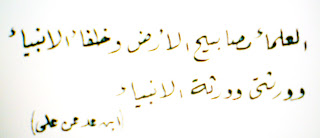 العلماء مصابيح الارض وخلفاء الانبياء
وورثتى وورثة الانبياء
(ابن عد عن على)